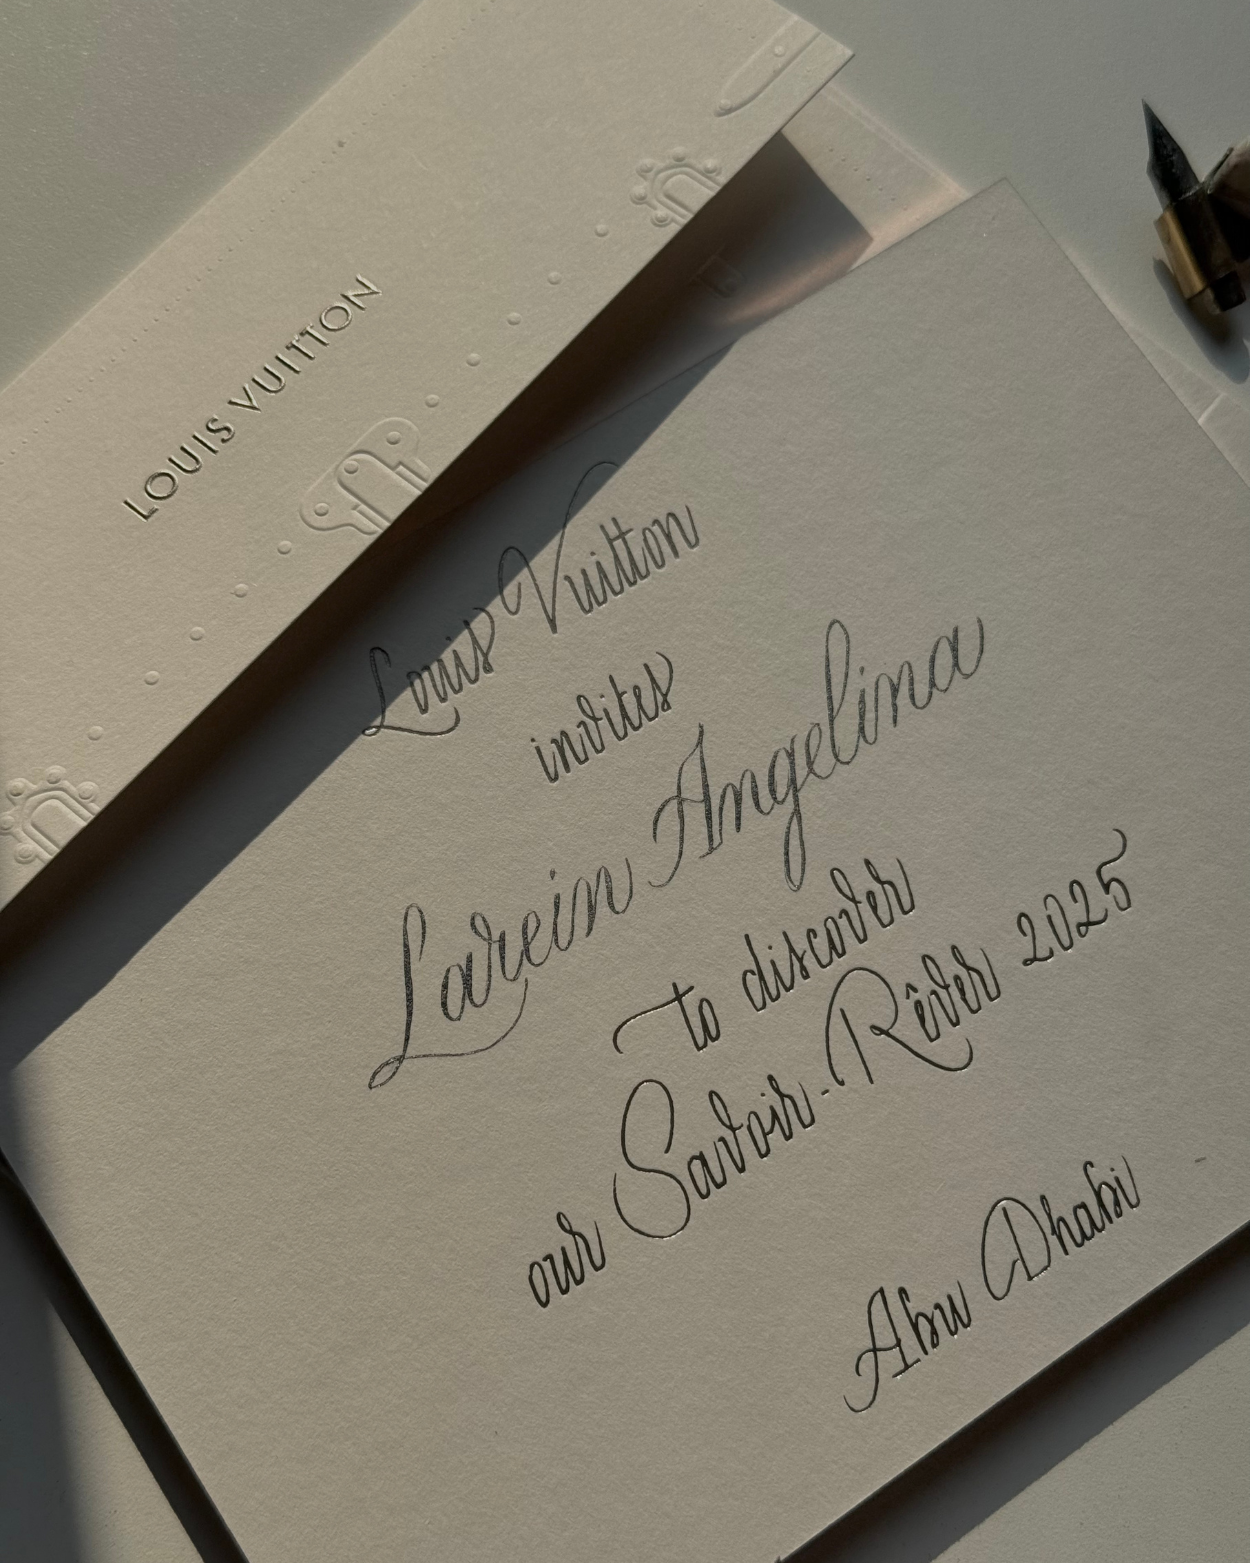 LOUIS VUITTON
Louis Vuitton
invites
Larein Angelina
to discover
our Savoir-Rêver 2025
Abu Dhabi